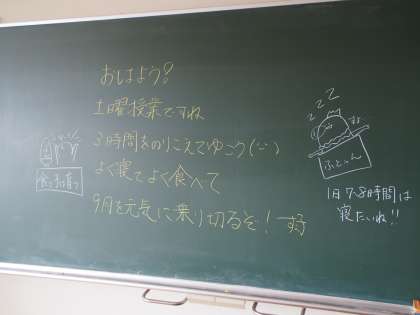 おはよう!
土曜授業ですね
3時間をのりこえてゆこう(‥)
よく寝てよく食べて
9月を元気に乗り切るぞ!
ZZZ
ふとん
1日7、8時間は
寝たいね!!